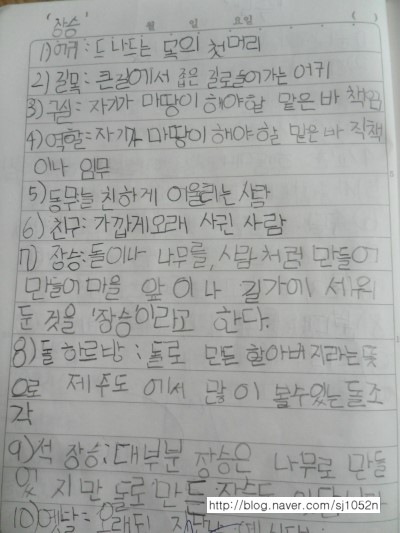 '장승'
월 일 요일 ( )
1) 어귀 : 드나드는 목의 첫머리
2) 길목 : 큰길에서 좁은 길로 들어가는 어귀
3) 구실 : 자기가 마땅이 해야할 맡은 바 책임
4) 역할 : 자기가 마땅이 해야할 맡은 바 직책
이나 임무
5) 동무 늘 친하게 어울리는 사람
6) 친구 : 가깝게 오래 사귄 사람
7) 장승 : 돌이나 나무를, 사람처럼 만들어
만들어 마을 앞이나 길가에 세워
둔 것을 '장승이라고 한다.
8) 돌 하르방 : 돌로 만든 할아버지라는 뜻
으로 제주도에서 많이 볼수있는 돌조
각
9) 석 장승 : 대부분 장승은 나무로 만들
었지만 돌로 만든 장승도
10) 옛날 : 오래된
http://blog.naver.com/sj1052n